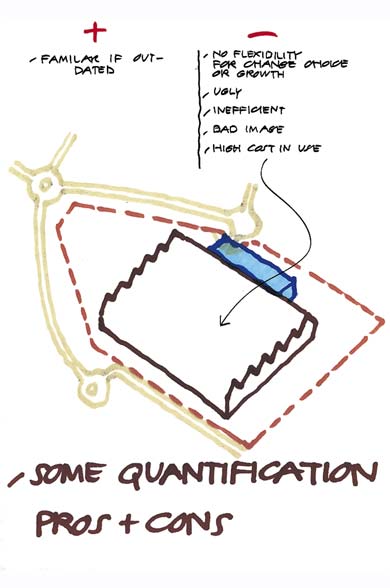 +
FAMILAR IF OUT-
DATED
−
NO FLEXIDILITY
FOR CHANGE CHOICE
OR GROWTH
UGLY
INEFFICIENT
BAD IMAGE
HIGH COST IN USE
SOME QUANTIFICATION
PROS + CONS